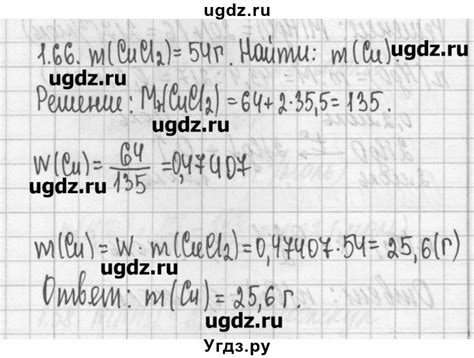 1.66. m(CuCl₂)=54г. Найти: m(Cu).
ugdz.ru
ugdz.ru
Решение: Mr(CuCl₂)=64+2·35,5=135.
ugdz.ru
W(Cu)=64/135=0,47407
ugdz.ru
ugdz.ru
m(Cu)=W·m(CuCl₂)=0,47407·54=25,6(г)
ugdz.ru
Ответ: m(Cu)=25,6 г.
ugdz.ru
Угдз.ру